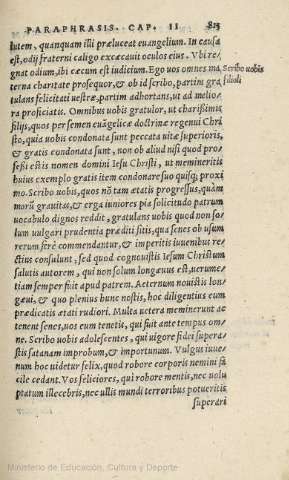 PARAPHRASIS. CAP. II 815
lutem, quanquam illi præluceat euangelium. In causa
est, odij fraterni caligo excæcauit oculos eius. Vbi re/
gnat odium, ibi cæcum est iudicium. Ego uos omnes ma/ Scribo uobis
terna charitate prosequor, & ob id scribo, partim gra/ filioli
tulans felicitati uestræ, partim adhortans, ut ad melio/
ra proficiatis. Omnibus uobis gratulor, ut charissimis
filijs, quos per semen euãgelicæ doctrinæ regenui Chri
sto, quia uobis condonata sunt peccata uitæ superioris,
& gratis condonata sunt, non ob aliud nisi quod pro/
fessi estis nomen domini Iesu Christi, ut memineritis
huius exemplo gratis item condonare suo quisq; proxi
mo. Scribo uobis, quos nõ tam ætatis progressus, quàm
morũ grauitas, & erga iuniores pia solicitudo patrum
uocabulo dignos reddit, gratulans uobis quod non so/
lum uulgari prudentia præditi sitis, qua senes ob usum
rerum ferè commendantur, & imperitis iuuenibus re/
ctius consulunt, sed quod cognouistis Iesum Christum
salutis autorem, qui non solum longæuus est, uerume/
tiam semper fuit apud patrem. Aeternum nouistis lon/
gæui, & quo plenius hunc nostis, hoc diligentius eum
prædicatis ætati rudiori. Multa uetera meminerunt ac
tenent senes, uos eum tenetis, qui fuit ante tempus om/
ne. Scribo uobis adolescentes, qui uigore fidei supera/
stis satanam improbum, & importunum. Vulgus iuue/
num hoc uidetur felix, quod robore corporis nemini fa
cile cedant. Vos feliciores, qui robore mentis, nec uolu
ptatum illecebris, nec ullis mundi terroribus potueritis
superari
Ministerio de Educación, Cultura y Deporte